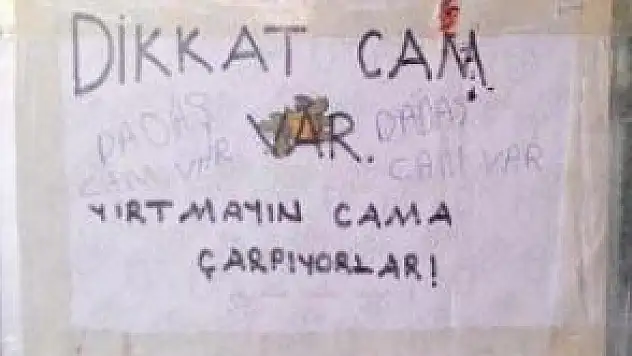 DİKKAT CAM
VAR.
DADAŞ
CAM VAR
DADAŞ
CAM VAR
YIRTMAYIN CAMA
ÇARPIYORLAR!